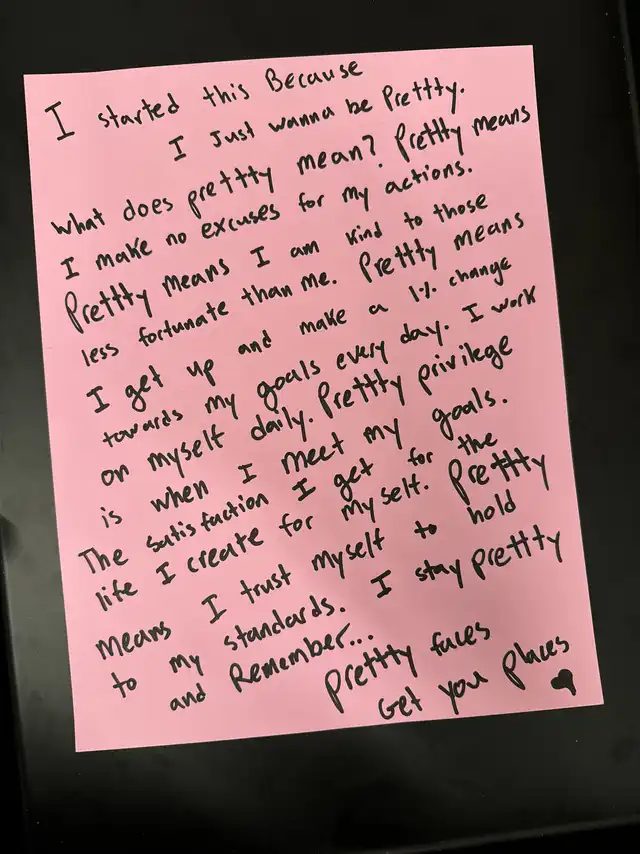 I started this Because
I Just wanna be Prettty.
What does prettty mean? Prettty means
I make no excuses for my actions.
Prettty means I am kind to those
less fortunate than me. Prettty means
I get up and make a 1% change
towards my goals every day. I work
on myself daily. Prettty privilege
is when I meet my goals.
The satisfaction I get for the
life I create for myself. Prettty
means I trust myself to hold
to my standards. I stay prettty
and Remember...
Prettty faces
Get you Places